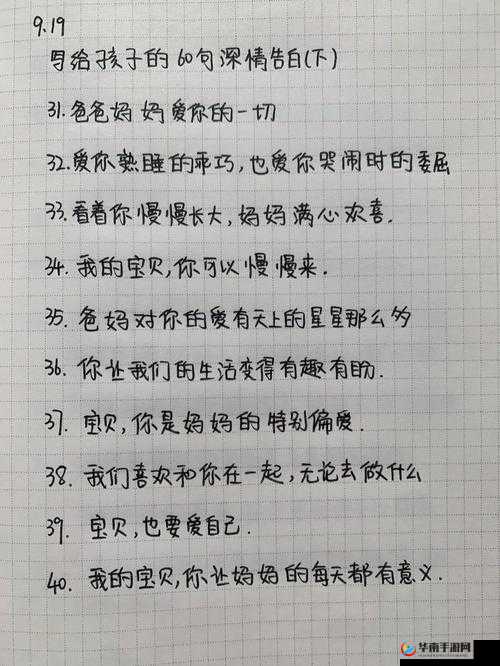 9.19
写给孩子的60句深情告白(下)
31.爸爸妈妈爱你的一切
32.爱你熟睡的乖巧,也爱你哭闹时的委屈
33.看着你慢慢长大,妈妈满心欢喜.
34.我的宝贝,你可以慢慢来.
35.爸妈对你的爱有天上的星星那么多
36.你让我们的生活变得有趣有盼.
37.宝贝,你是妈妈的特别偏爱.
38.我们喜欢和你在一起,无论去做什么
39.宝贝,也要爱自己.
40.我的宝贝,你让妈妈的每天都有意义.
华南手游网